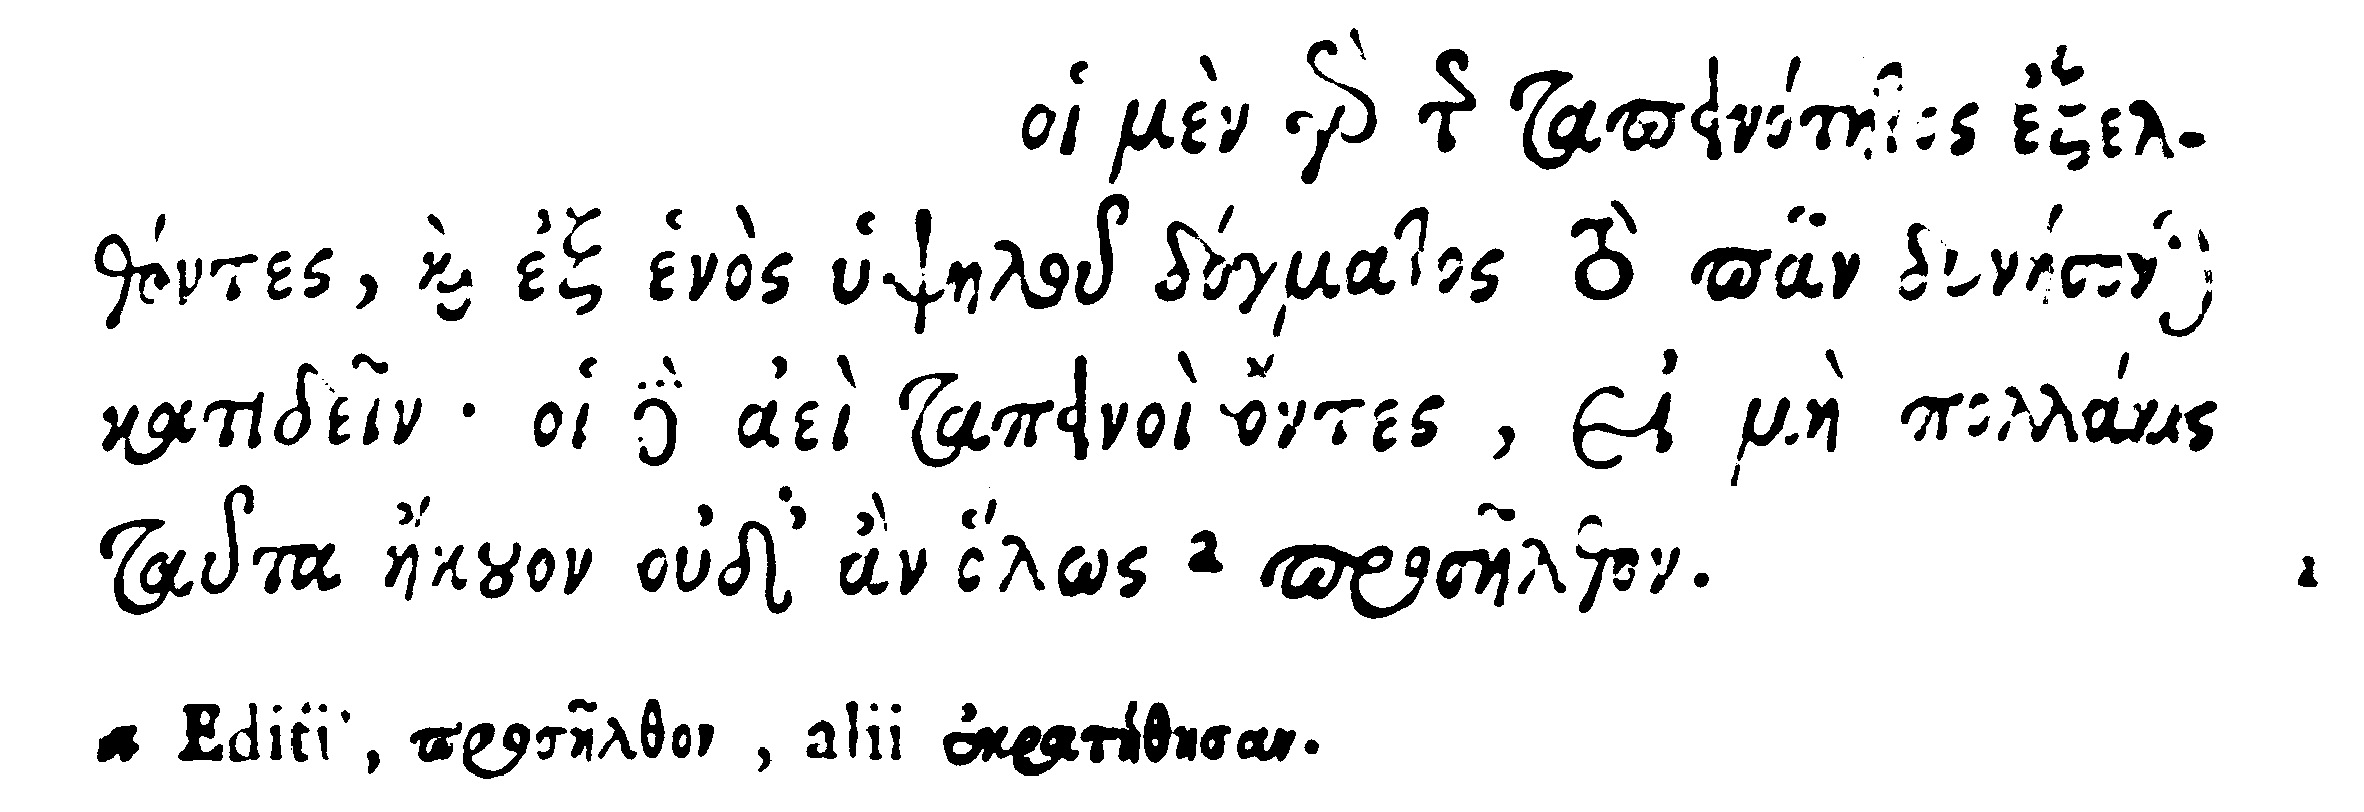 οἱ μὲν γὰρ τῆς ταπεινότητος ἐξελ-
θόντες, καὶ ἐξ ἑνὸς ὑψηλοῦ δόγματος τὸ πᾶν δυνήσονται
κατιδεῖν· οἱ δὲ ἀεὶ ταπεινοὶ ὄντες, εἰ μὴ πολλάκις
ταῦτα ἤκουον οὐδ' ἂν ὅλως a προσῆλθον. a
a Editi, προσῆλθον, alii ἐκρατήθησαν.